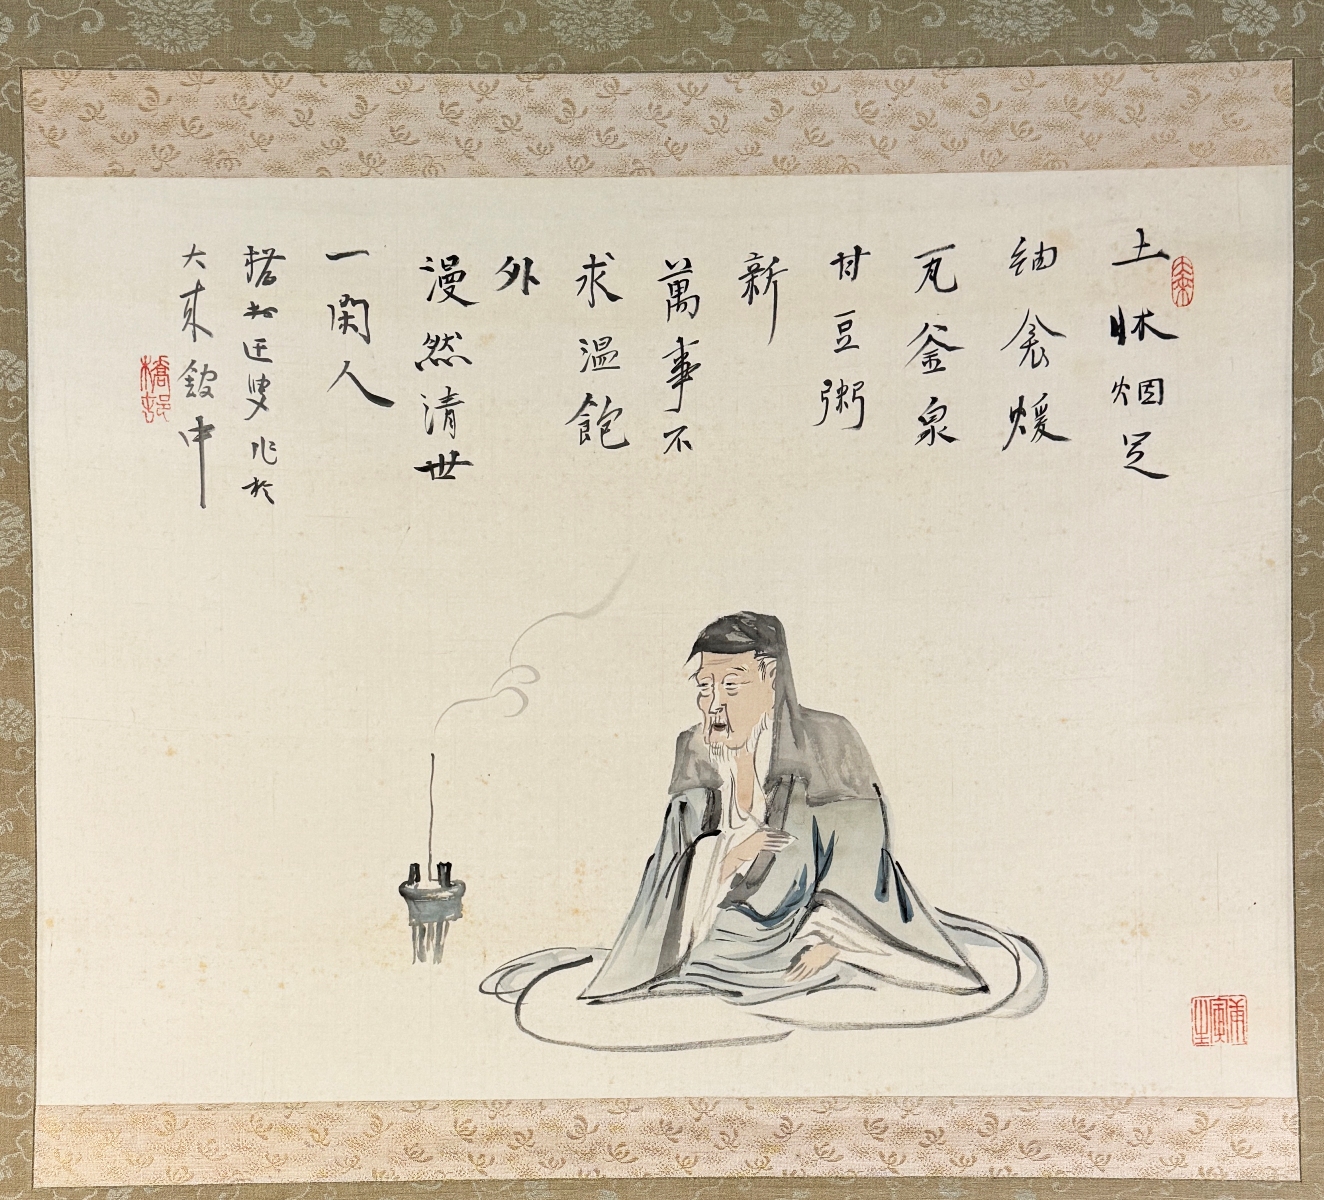 土牀烟足
紬衾煖
瓦釜泉
甘豆粥
新
萬事不
求温飽
外
漫然清世
一閑人
橋邨迂叟作於
大来館中
橋邨